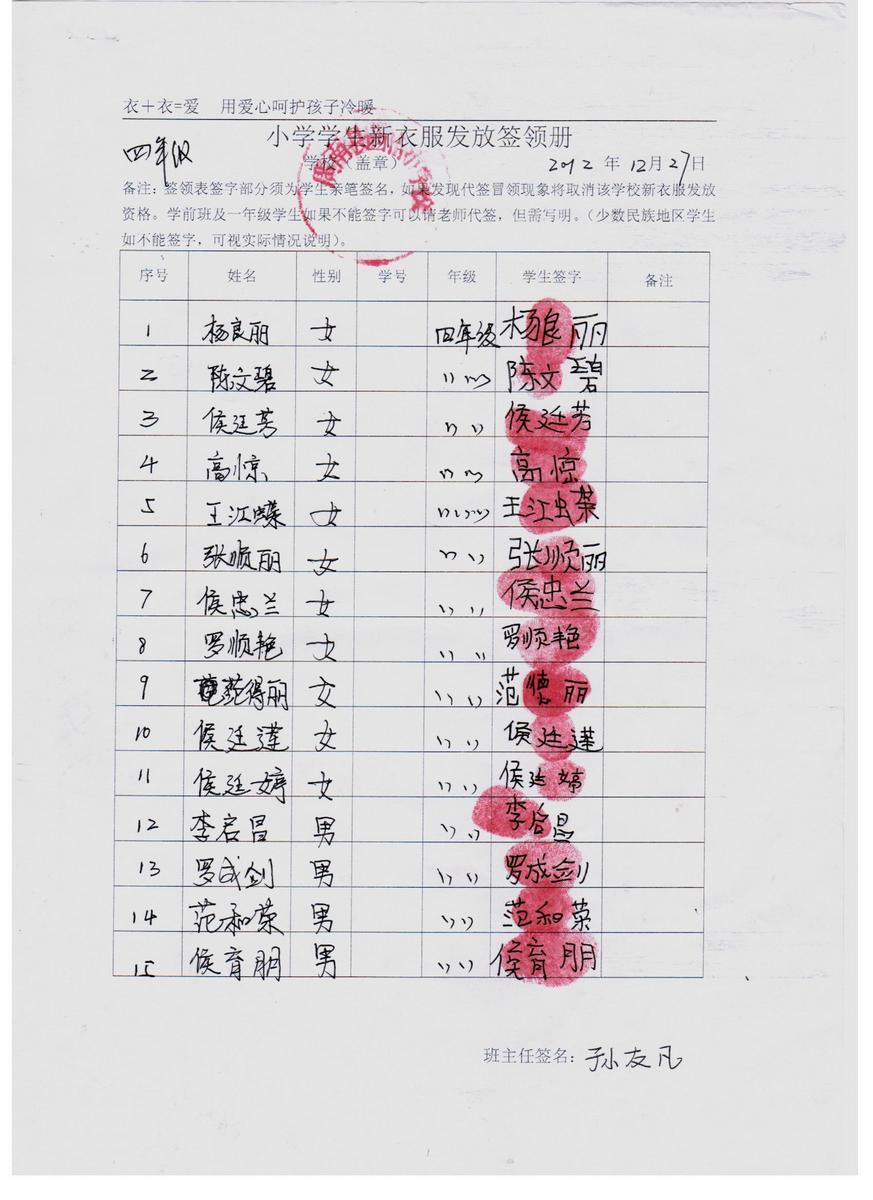 衣＋衣=爱 用爱心呵护孩子冷暖
小学学生新衣服发放签领册
四年级 学校（盖章） 2012 年 12月27日
备注：签领表签字部分须为学生亲笔签名，如果发现代签冒领现象将取消该学校新衣服发放
资格。学前班及一年级学生如果不能签字可以请老师代签，但需写明。（少数民族地区学生
如不能签字，可视实际情况说明）。
序号 姓名 性别 学号 年级 学生签字 备注
1 杨良丽 女 四年级 杨良丽
2 陈文碧 女 〃 〃 陈文碧
3 侯廷芳 女 〃 〃 侯廷芳
4 高惊 女 〃 〃 高惊
5 王江蝶 女 〃 〃 王江蝶
6 张顺丽 女 〃 〃 张顺丽
7 侯忠兰 女 〃 〃 侯忠兰
8 罗顺艳 女 〃 〃 罗顺艳
9 范得丽 女 〃 〃 范德丽
10 侯廷莲 女 〃 〃 侯廷莲
11 侯廷婷 女 〃 〃 侯廷婷
12 李启昌 男 〃 〃 李启昌
13 罗成剑 男 〃 〃 罗成剑
14 范和荣 男 〃 〃 范和荣
15 侯育朋 男 〃 〃 侯育朋
班主任签名：孙友凡